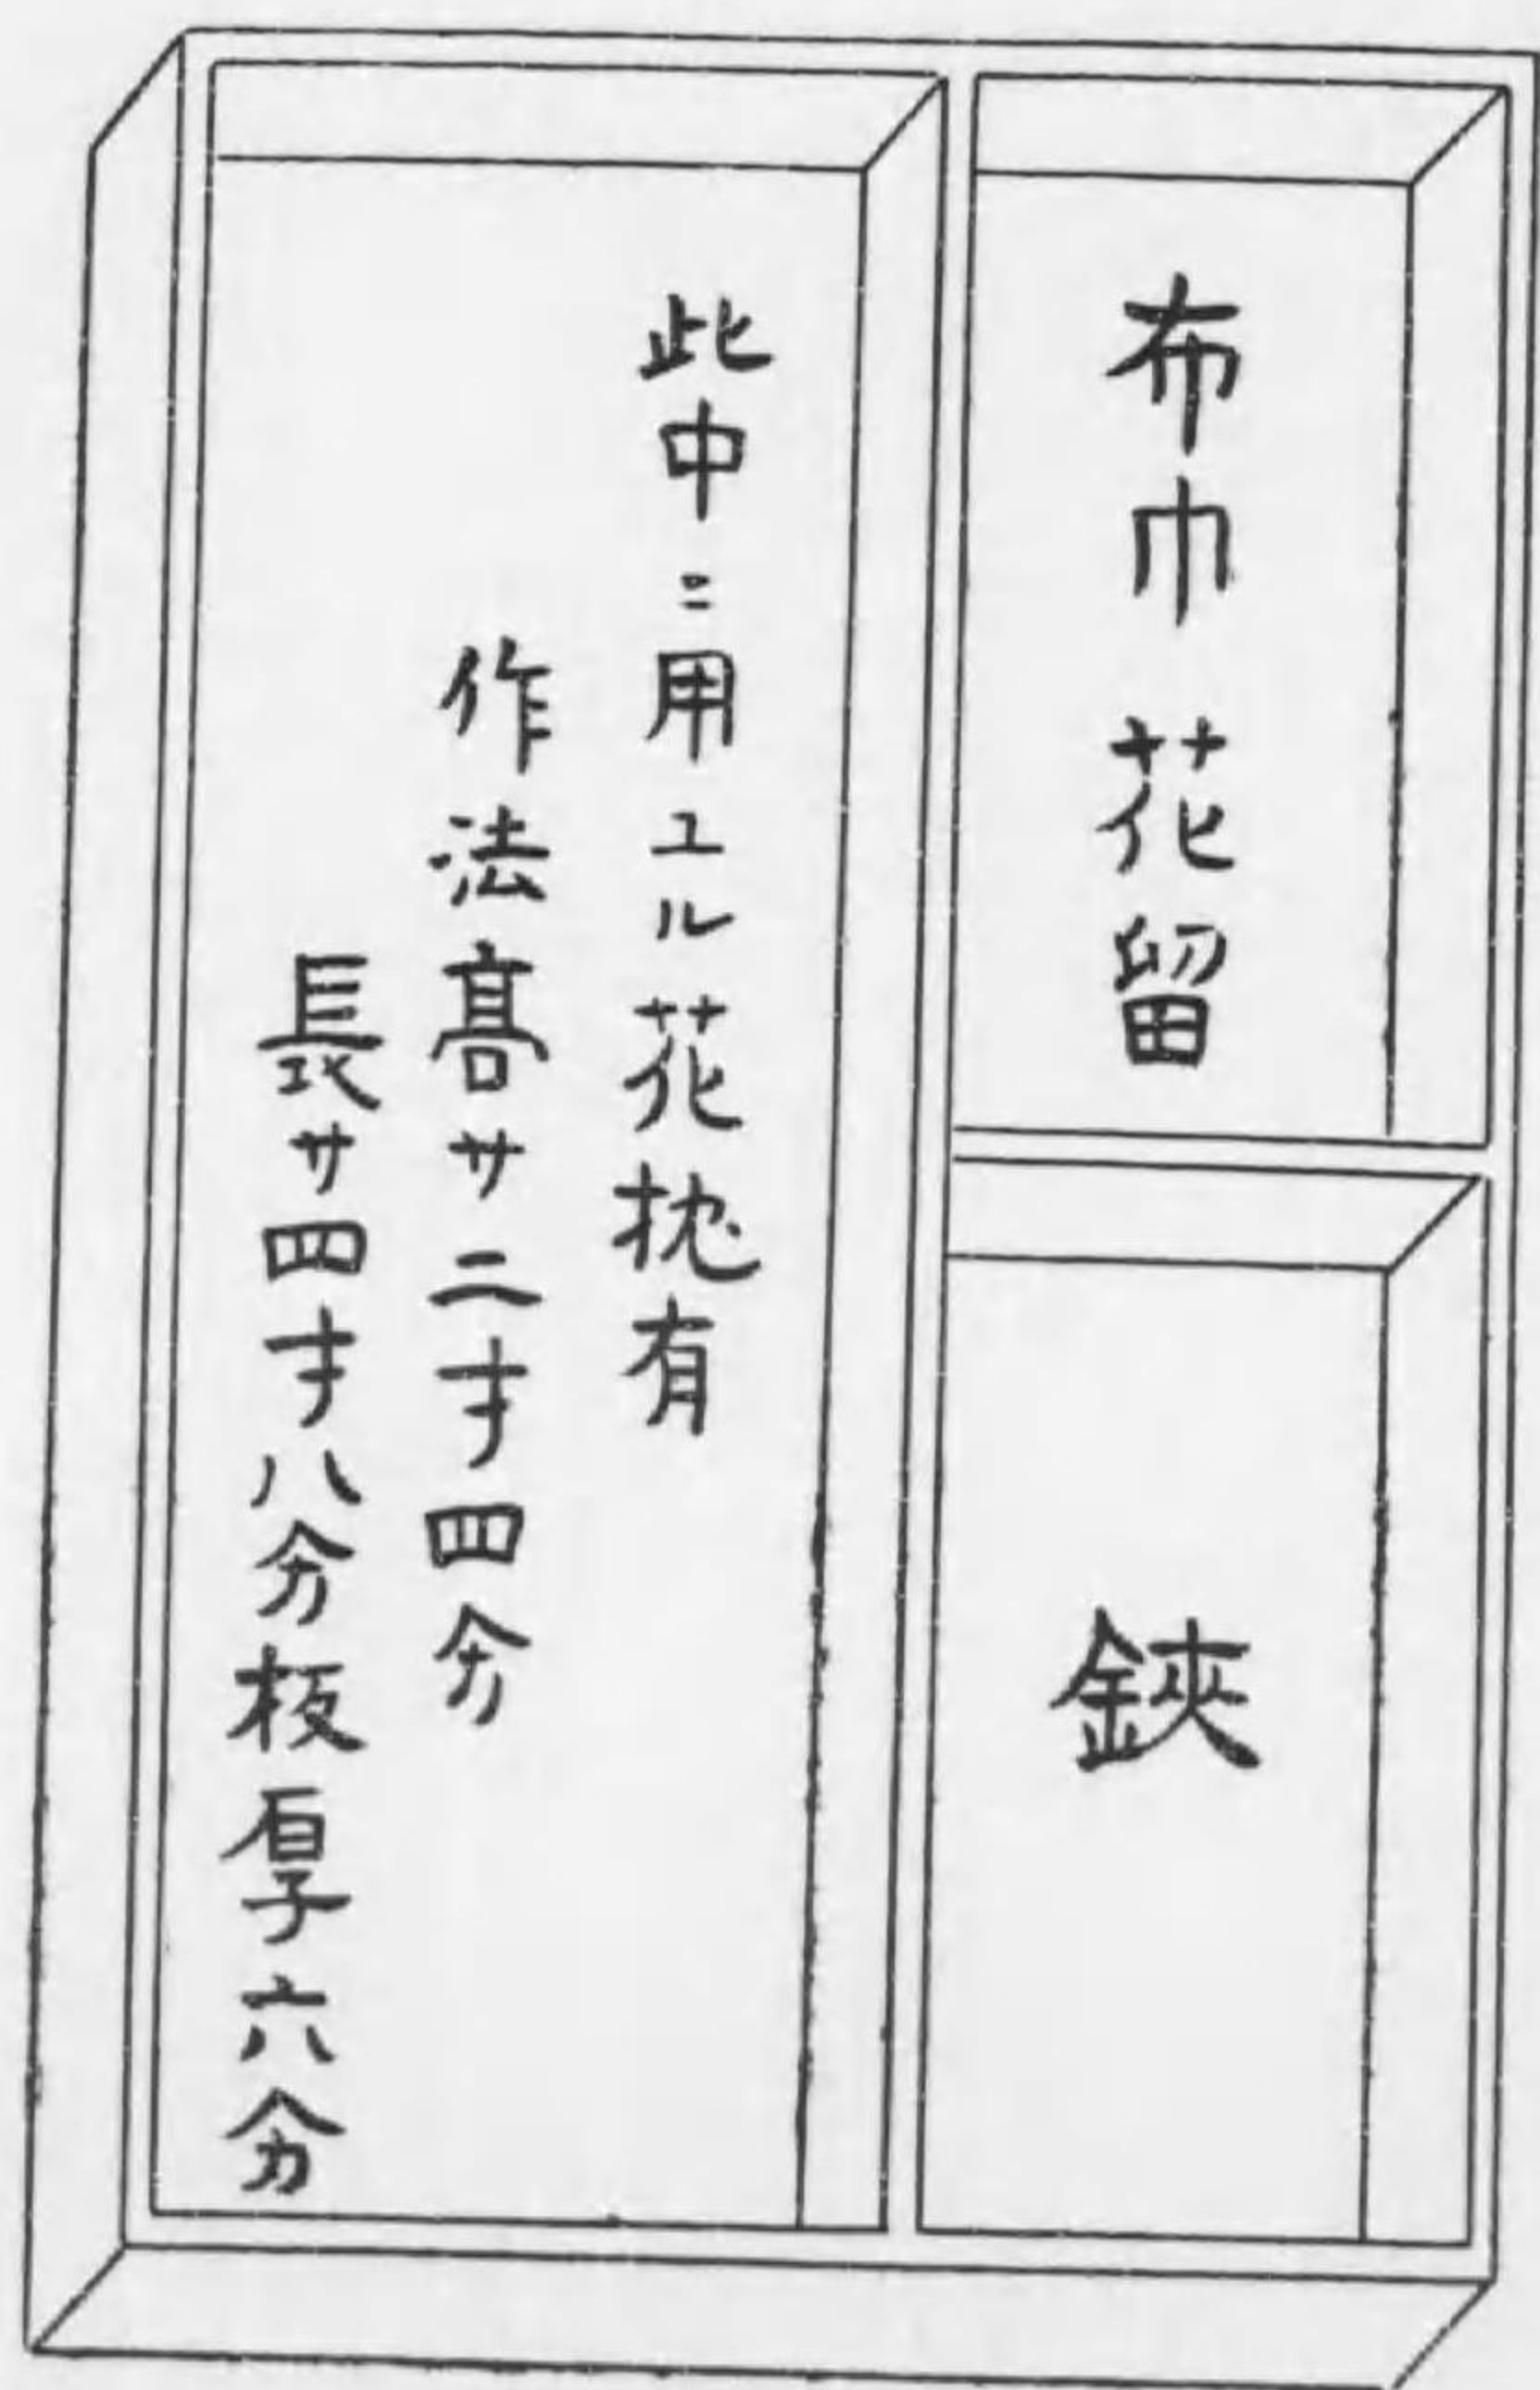 布巾 花留
鋏
此中ニ用ユル花枕有
作法高サ二寸四分
長サ四寸八分板厚六分